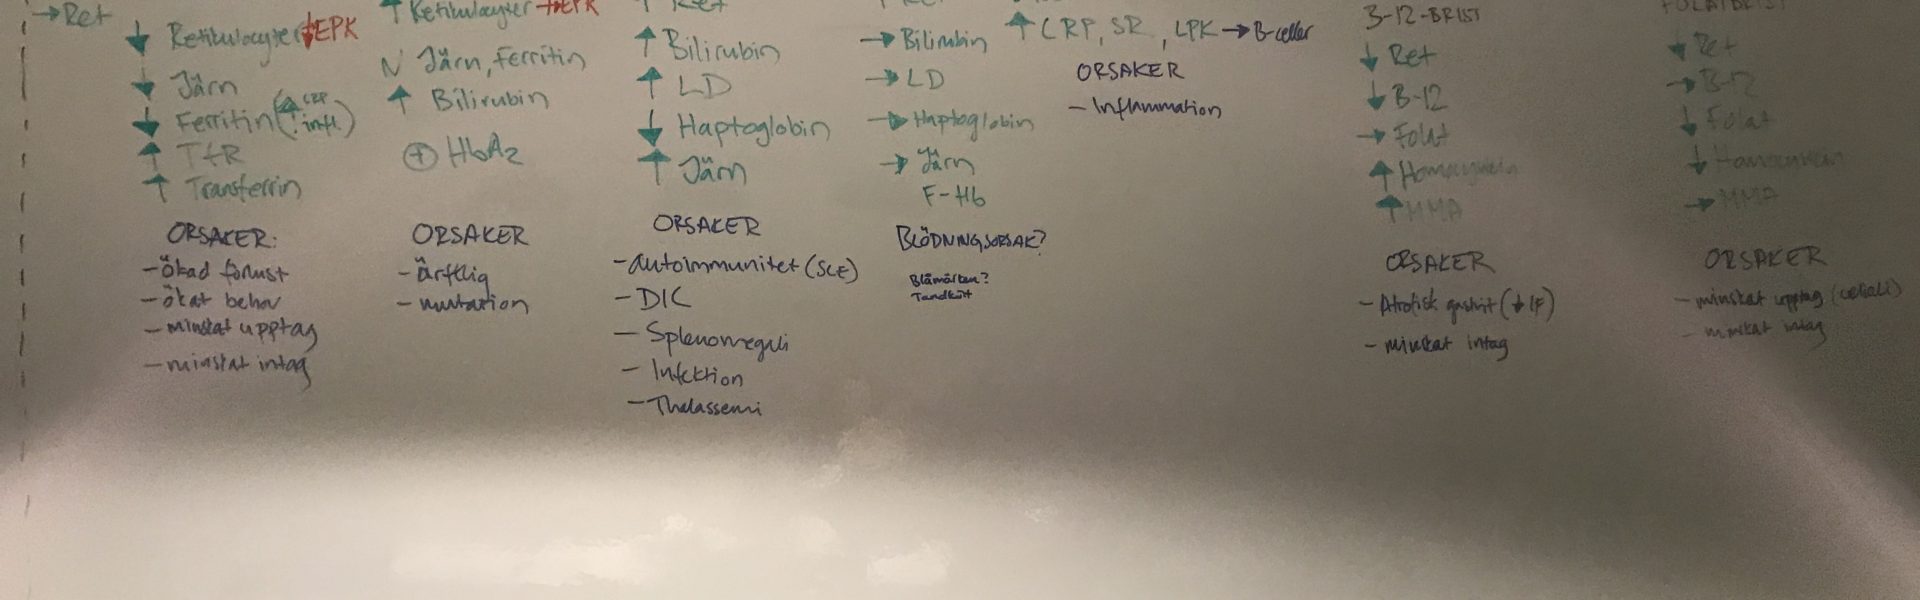 →Ret
↓ Retikulocyter ↓EPK
↓ Järn
↓ Ferritin (↑ CRP
infl.)
↑ TfR
↑ Transferrin
ORSAKER:
-ökad förlust
-ökat behov
-minskat upptag
-minskat intag
↑ Retikulocyter →EPK
N Järn, Ferritin
↑ Bilirubin
⊕ HbA2
ORSAKER
-ärftlig
-mutation
↑ Ret
↑ Bilirubin
↑ LD
↓ Haptoglobin
↑ Järn
ORSAKER
-autoimmunitet (SLE)
-DIC
-Splenomegali
-Infektion
-Thalassemi
→ Bilirubin
→ LD
→ Haptoglobin
→ Järn
F-Hb
BLÖDNINGSORSAK?
Blåmärken?
Tandkött
↑ CRP, SR, LPK → B-celler
ORSAKER
- Inflammation
B-12-BRIST
↓ Ret
↓ B-12
→ Folat
↑ Homocystein
↑ MMA
ORSAKER
- Atrofisk gastrit (↓ IF)
- minskat intag
FOLATBRIST
↓ Ret
→ B-12
↓ Folat
↓ Homocystein
→ MMA
ORSAKER
- minskat upptag (celiaki)
- minskat intag